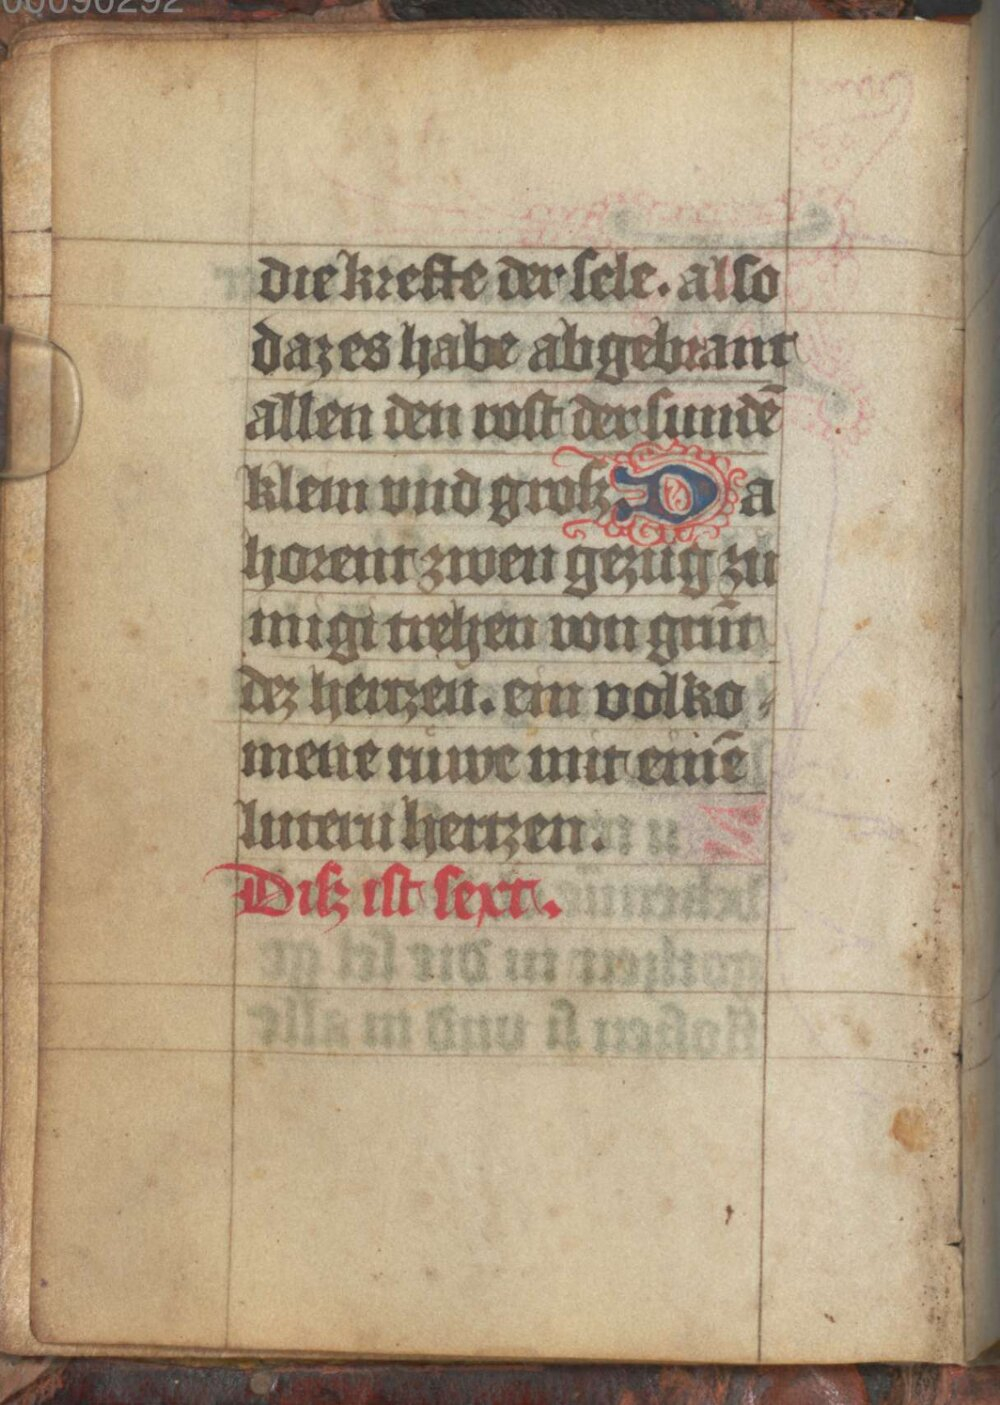 00090292
die krefte der sele. also
daz es habe abgebrant
allen den rost der sundē
klein vnd grosz. Da
horent zwen gezùg zù
migt trehen von grūt
dez hertzen. ein volko⸗
mene rùwe mit einē
lutern hertzen.
Disz ist sext.